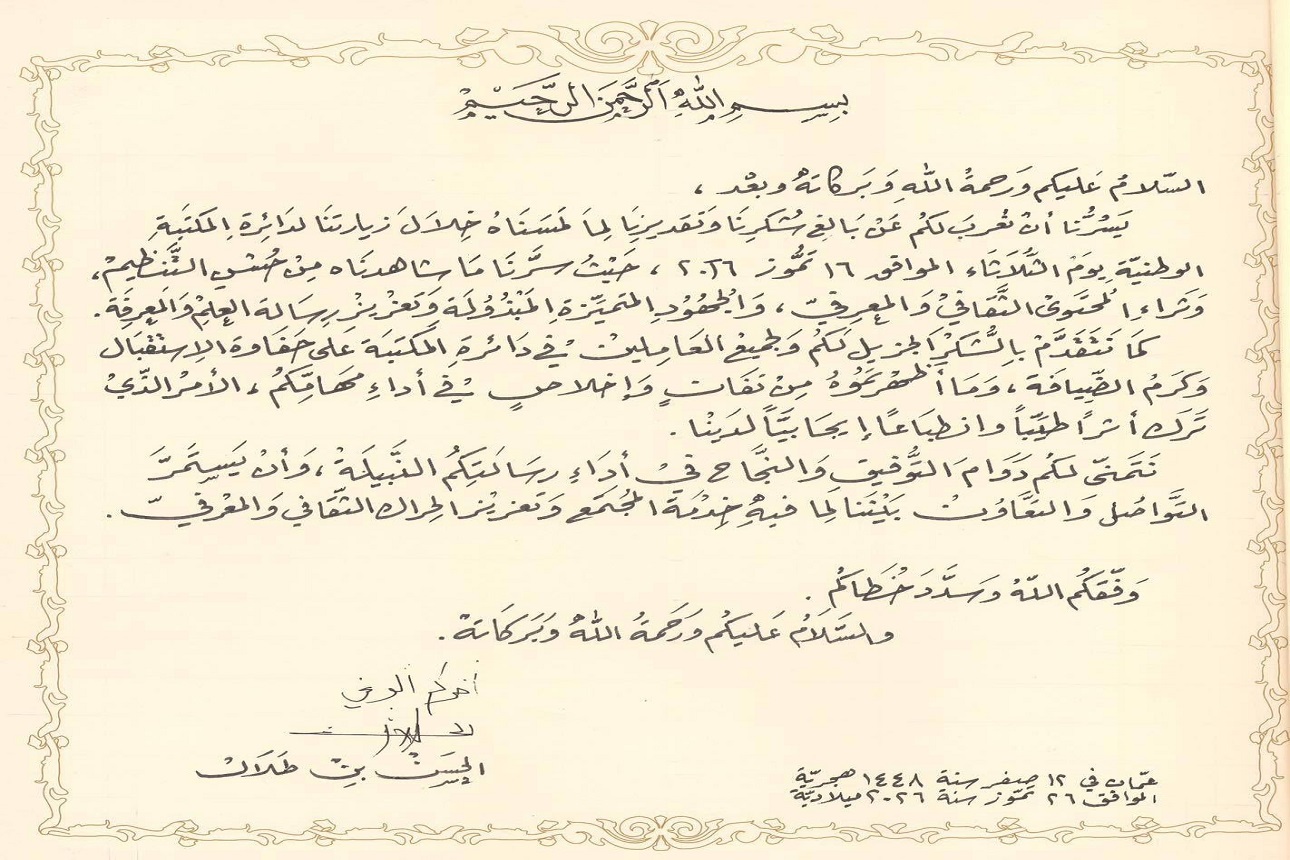 بِسْمِ اللهِ الرَّحْمٰنِ الرَّحِيْمِ
السَّلامُ عَليكم وَرَحمةُ اللهِ وَبَركاتهُ وبعْد ،
يَسُرُّنا أنْ نُعْربَ لكُم عَنْ بَالغِ شُكرِنَا وَتَقديرِنَا لِما لمَسَنَاهُ خِلالَ زيارتنَا لدَائِرةِ المَكتَبَةِ
الوطنيّةِ يومَ الثُّلاَثَاء الموافق ١٦ تَمُّوز ٢٠٢٦ ، حَيْثُ سرَّنَا مَا شاهدنَاه مِنْ حُسْنِ التَّنْظيمْ،
وَثَراءِ المُحتَوىْ الثَّقافيْ وَالمعِرفيّ ، وَالجُهُودِ المتَميّزةِ المَبْذُولَة وَتعَزيْزِ رِسالة العِلمْ وَالمَعرِفَة.
كمَا نَتَقَدَّمْ بِالشُّكرِ الجزيل لَكُم وَلجميع العَامِلينْ فيْ دَائرةِ المكتَبَة على حَفَاوة الاِستقْبال
وَكرَمُ الضّيافَة ، وَمَا أظهْرتمُوهُ مِنْ تفَانٍ وَإخلاصٍ فيْ أداءِ مَهامّكُم ، الأمرْ الذّيْ
تَركَ أثراً طيّباً وانطبَاعًا إيجَابيَّاً لدَينْا .
نَتَمنّى لكُم دَوَامَ التَّوفيقِ وَالنَّجَاح فيْ أدَاءِ رسَالتِكُم النَّبيلَة ، وَأنْ يَستَمرَّ
التَّواصُل وَالتعَّاونْ بَيْنَنَا لِما فيهِ خِدْمَة المُجتَمع وَتعَزيْز الحِراك الثقَّافي وَالمعْرفيّ .
وَفّقكُم اللهُ وَسدَّدَ خُطاكُم .
والسَّلاَمُ عَليكُم ورَحَمةُ اللهُ وبَرَكَاتهُ .
أخوكم الوفي
الحسَنْ بنْ طَلاَل
عمّان في ١٢ صفر سنة ١٤٤٨ هجريّة
الموافق ٢٦ تمّوز سنة ٢٠٢٦ ميلاديّة